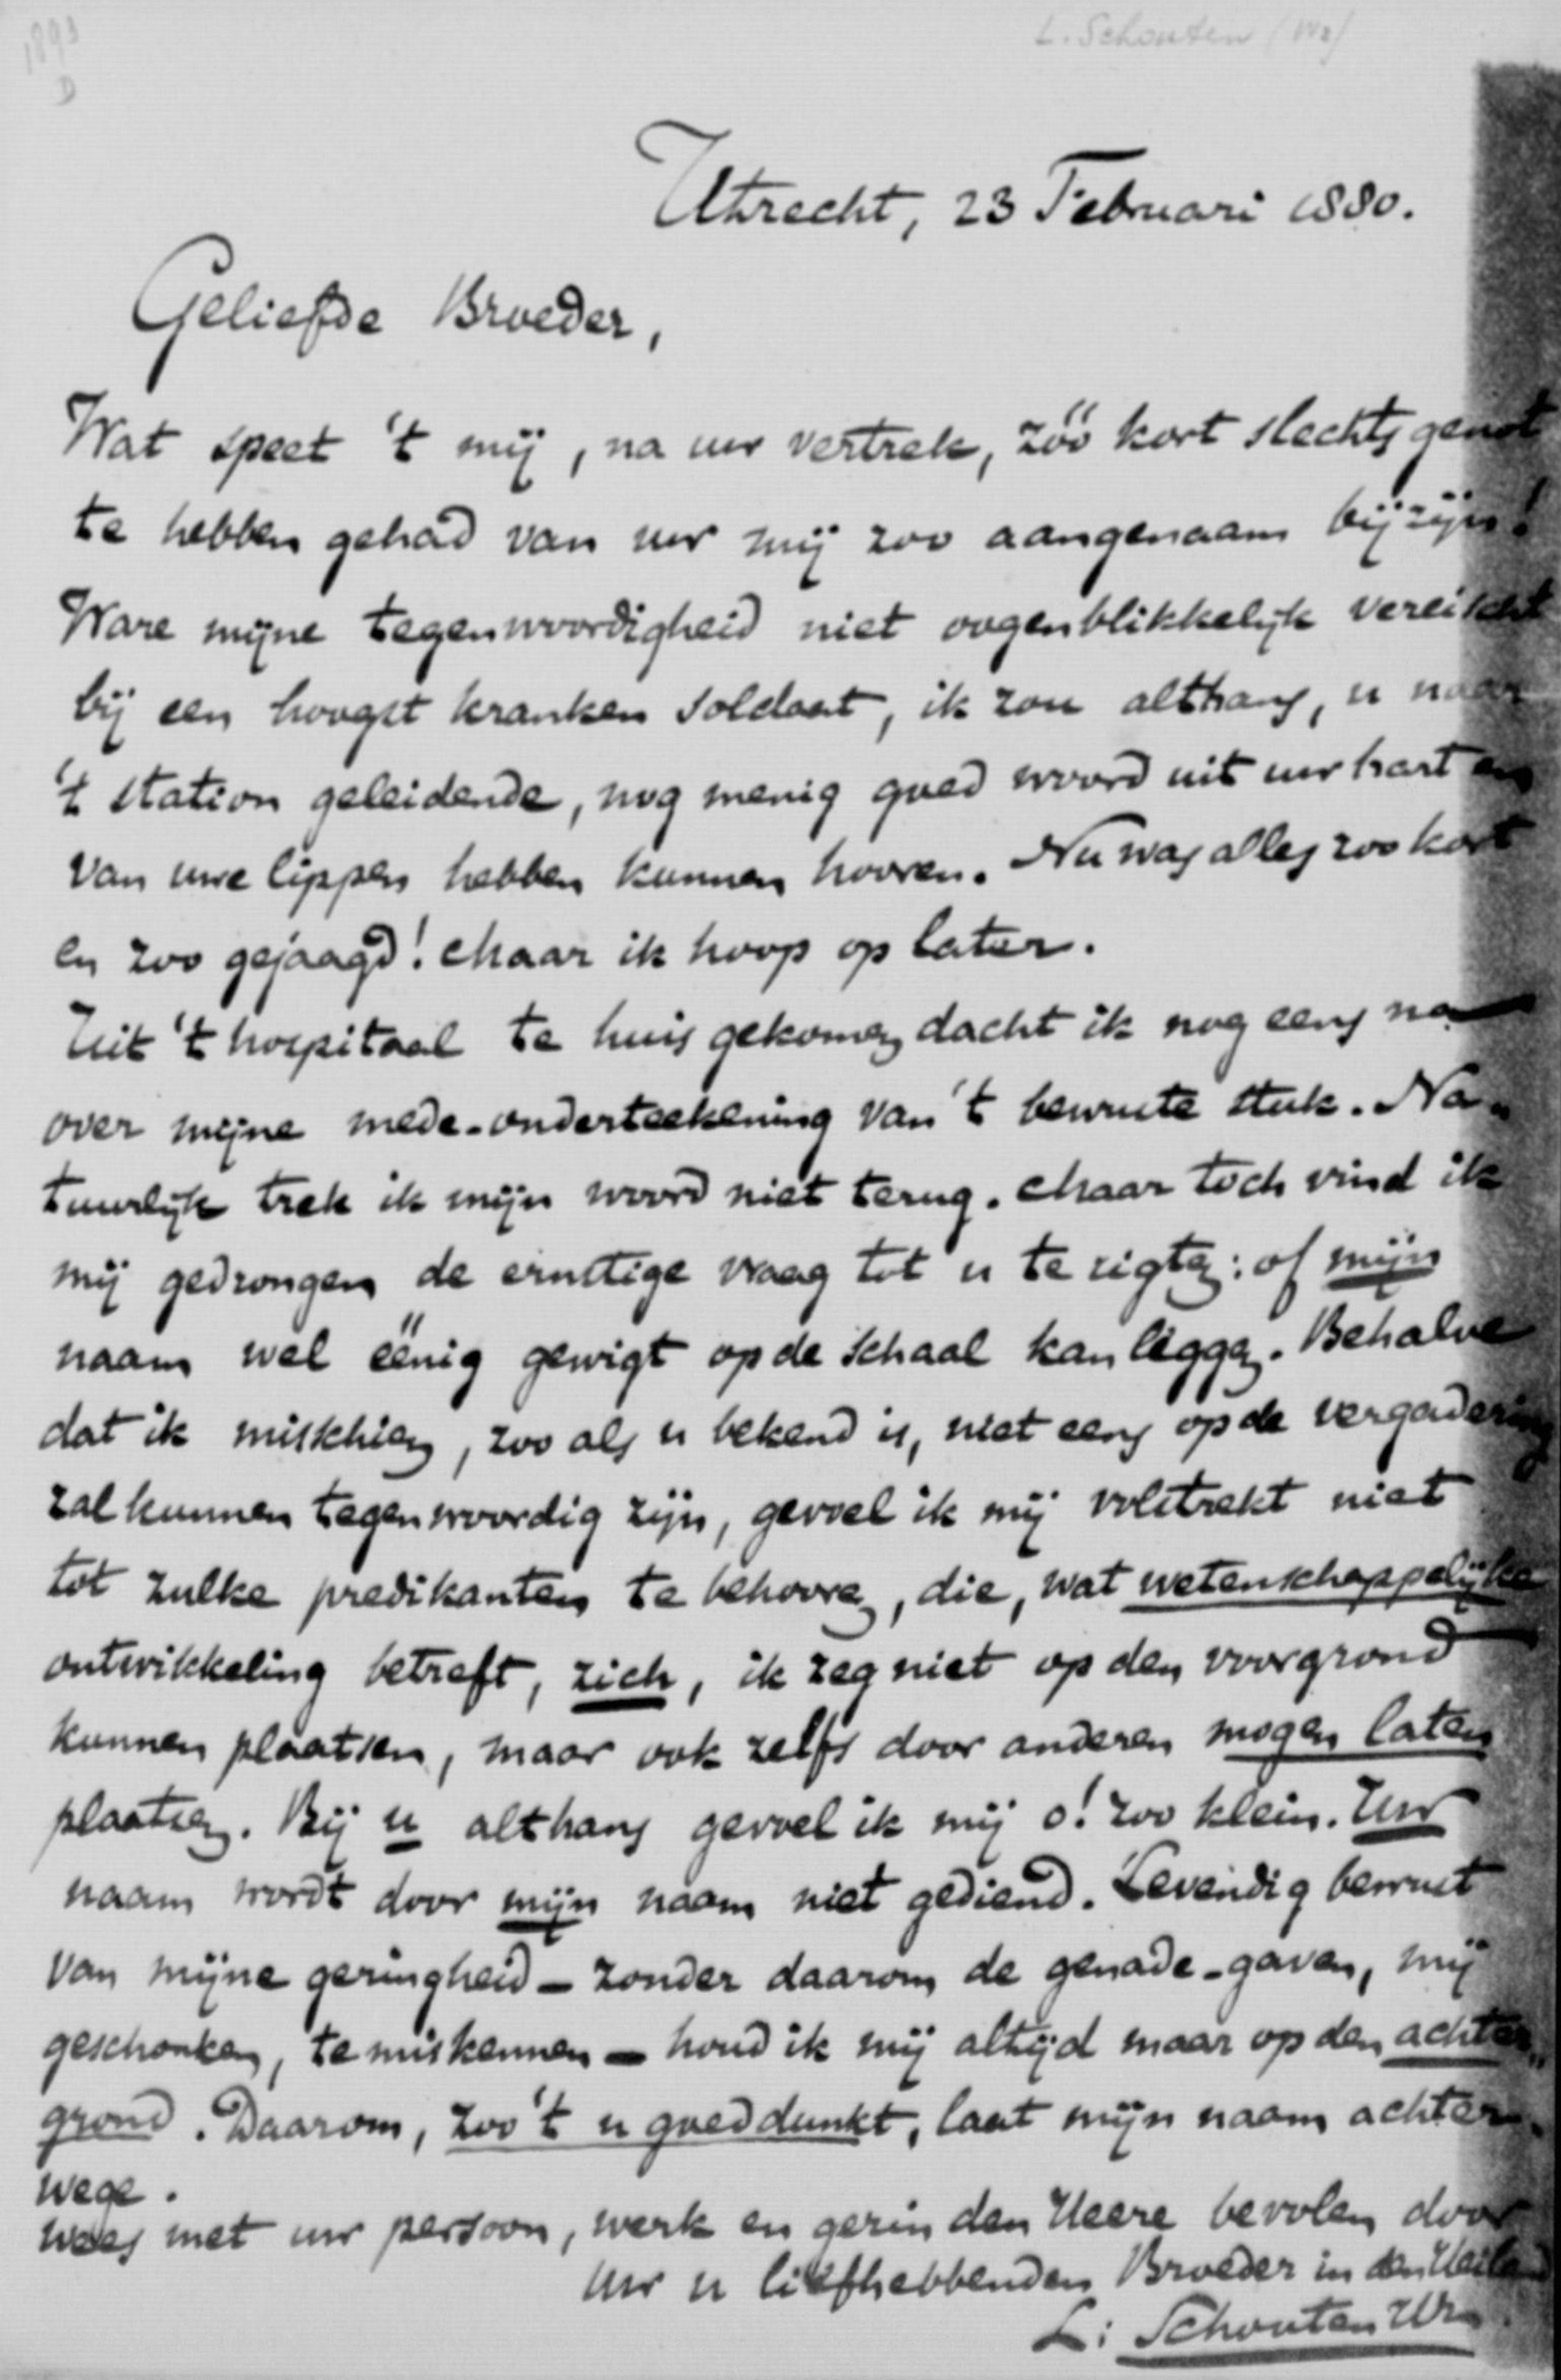 1893 L. Schouten (Wz)
D
Utrecht, 23 Februari 1880.
Geliefde Broeder,
Wat speet 't mij, na uw vertrek, zóó kort slechts genot
te hebben gehad van uw mij zoo aangenaam bijzijn!
Ware mijne tegenwoordigheid niet oogenblikkelijk vereischt
bij een hoogst kranken soldaat, ik zou althans, u naar
't station geleidende, nog menig goed woord uit uw hart en
van uwe lippen hebben kunnen hooren. Nu was alles zoo kort
en zoo gejaagd! Maar ik hoop op later.
Uit 't hospitaal te huis gekomen dacht ik nog eens na
over mijne mede-onderteekening van 't bewuste stuk. Na-
tuurlijk trek ik mijn woord niet terug. Maar toch vind ik
mij gedrongen de ernstige vraag tot u te rigten: of mijn
naam wel éénig gewigt op de schaal kan leggen. Behalve
dat ik misschien, zoo als u bekend is, niet eens op de vergadering
zal kunnen tegenwoordig zijn, gevoel ik mij volstrekt niet
tot zulke predikanten te behooren, die, wat wetenschappelijke
ontwikkeling betreft, zich, ik zeg niet op den voorgrond
kunnen plaatsen, maar ook zelfs door anderen mogen laten
plaatsen. Bij u althans gevoel ik mij o! zoo klein. Uw
naam wordt door mijn naam niet gediend. Levendig bewust
van mijne geringheid - zonder daarom de genade-gaven, mij
geschonken, te miskennen - houd ik mij altijd maar op den achter-
grond. Daarom, zoo 't u goeddunkt, laat mijn naam achter-
wege.
Wees met uw persoon, werk en gezin den Heere bevolen door
Uw u liefhebbenden Broeder in den Heiland
L: Schouten Wz.